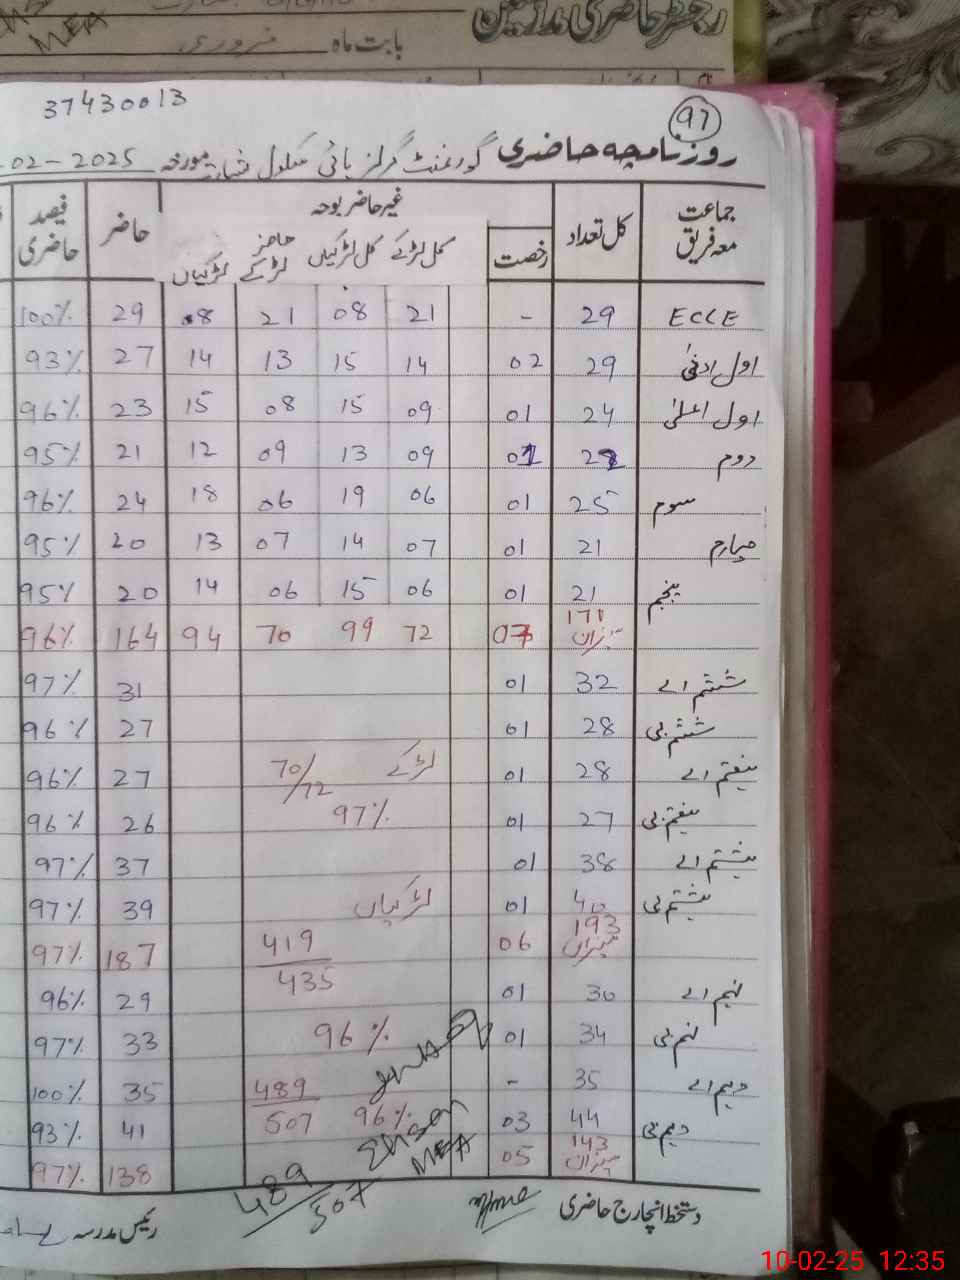 رجسٹر حاضری مدرسین
بابت ماہ فروری
MEA
37430013
97
روزنامچہ حاضری گورنمنٹ گرلز ہائی سکول مورخہ 02-2025
جماعت معہ فریق کل تعداد رخصت غیر حاضر بوجہ حاضر فیصد حاضری
کل لڑکے کل لڑکیاں حاضر لڑکے لڑکیاں
ECCE 29 - 21 08 21 08 29 100%
اول ادنیٰ 29 02 14 15 13 14 27 93%
اول اعلیٰ 24 01 09 15 08 15 23 96%
دوم 22 01 09 13 09 12 21 95%
سوم 25 01 06 19 06 18 24 96%
چہارم 21 01 07 14 07 13 20 95%
پنجم 21 01 06 15 06 14 20 95%
میزان 171 07 72 99 70 94 164 96%
ششم اے 32 01 31 97%
ششم بی 28 01 27 96%
ہفتم اے 28 01 لڑکے 70/72 27 96%
ہفتم بی 27 01 97% 26 96%
ہشتم اے 38 01 37 97%
ہشتم بی 40 01 لڑکیاں 39 97%
میزان 193 06 419 187 97%
نہم اے 30 01 435 29 96%
نہم بی 34 01 96% 33 97%
دہم اے 35 - 489 35 100%
دہم بی 44 03 507 96% 41 93%
میزان 143 05 138 97%
Ehsan
MEA
489/507
دستخط انچارج حاضری
رئیس مدرسہ
10-02-25 12:35